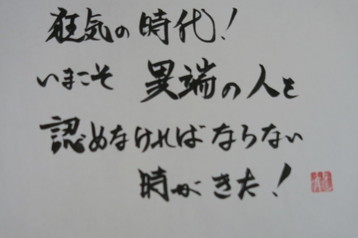 狂気の時代!
いまこそ 異端の人を
認めなければならない
時がきた!